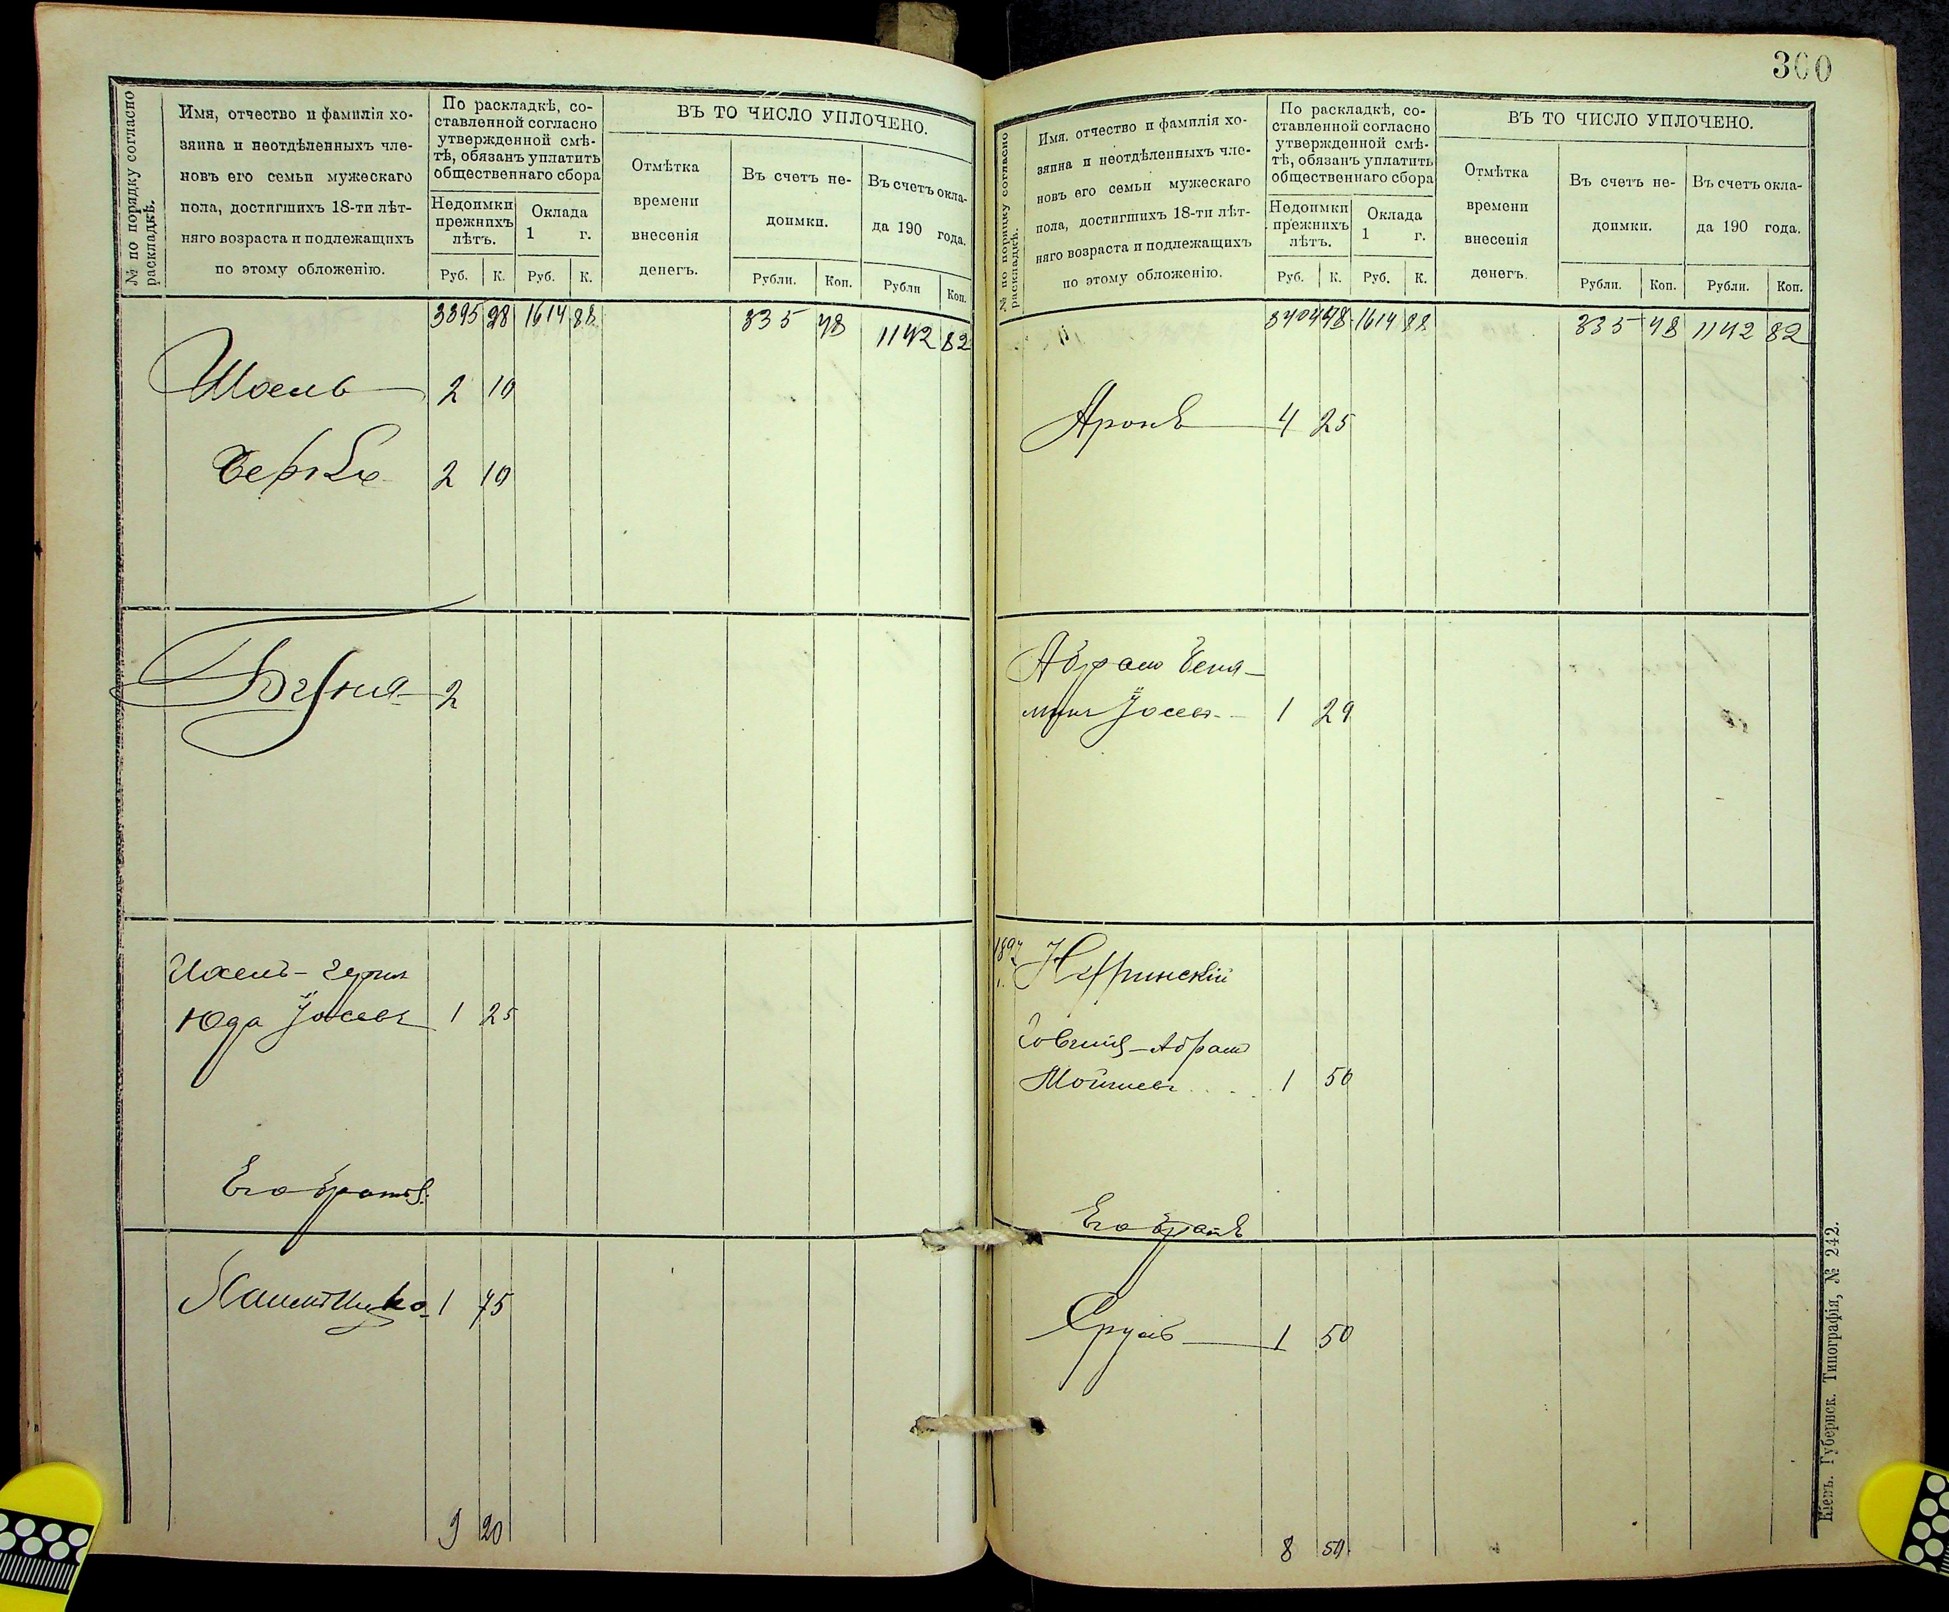 № по порядку согласно
раскладкѣ.
Имя, отчество и фамилія хо-
зяина и неотдѣленныхъ чле-
новъ его семьи мужескаго
пола, достигшихъ 18-ти лѣт-
няго возраста и подлежащихъ
по этому обложенію.
По раскладкѣ, со-
ставленной согласно
утвержденной смѣ-
тѣ, обязанъ уплатить
общественнаго сбора
Недоимки
прежнихъ
лѣтъ.
Оклада
1 г.
Руб. К. Руб. К.
ВЪ ТО ЧИСЛО УПЛОЧЕНО.
Отмѣтка
времени
внесенія
денегъ.
Въ счетъ не-
доимки.
Въ счетъ окла-
да 190 года.
Рубли. Коп. Рубли Коп.
3395 28 1614 88 335 48 1142 82
2 10
Берко 2 10
2
Юда Іосевъ 1 25
Его братъ:
1 75
9 20
300
№ по порядку согласно
раскладкѣ.
Имя, отчество и фамилія хо-
зяина и неотдѣленныхъ чле-
новъ его семьи мужескаго
пола, достигшихъ 18-ти лѣт-
няго возраста и подлежащихъ
по этому обложенію.
По раскладкѣ, со-
ставленной согласно
утвержденной смѣ-
тѣ, обязанъ уплатить
общественнаго сбора
Недоимки
прежнихъ
лѣтъ.
Оклада
1 г.
Руб. К. Руб. К.
ВЪ ТО ЧИСЛО УПЛОЧЕНО.
Отмѣтка
времени
внесенія
денегъ.
Въ счетъ не-
доимки.
Въ счетъ окла-
да 190 года.
Рубли. Коп. Рубли. Коп.
3404 48 1614 88 335 48 1142 82
Аронъ 4 25
Абрам Веня-
минъ Іосевъ 1 29
1897
Абрам
Мошиевъ 1 50
Его братъ
Сруль 1 50
8 54
Кіевъ. Губернск. Типографія, № 242.